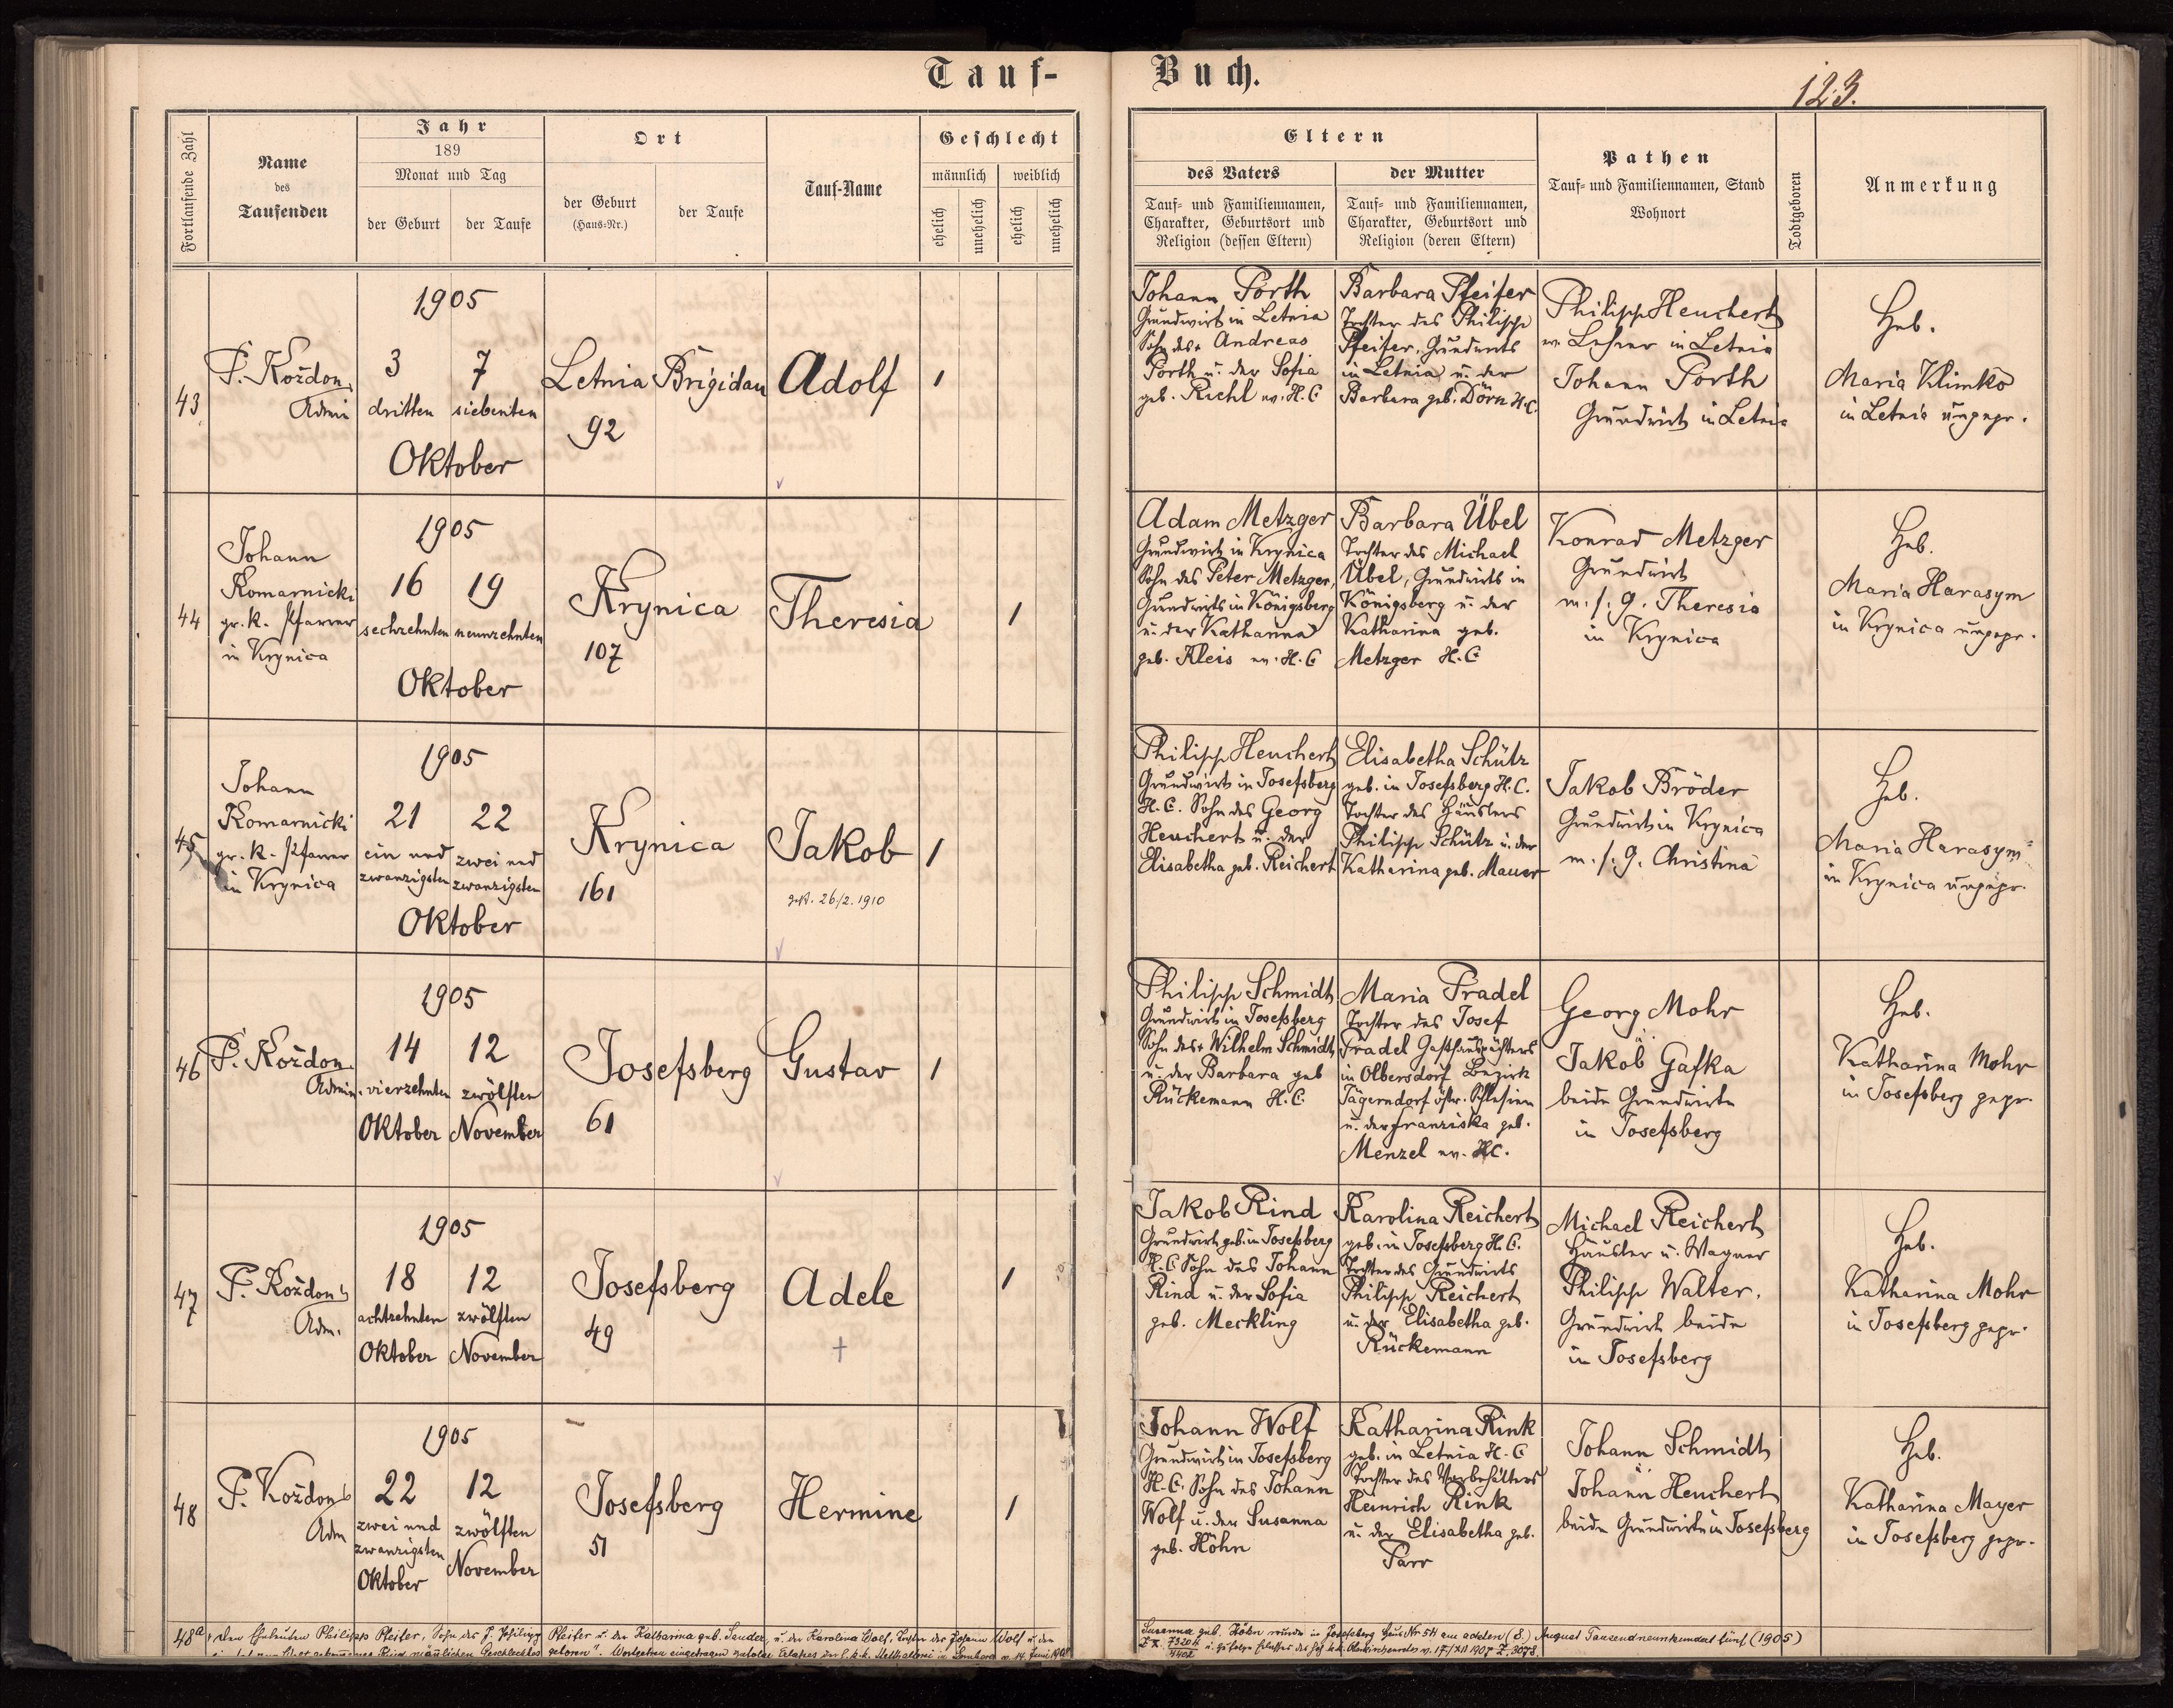 Tauf-
Buch.
123.
Fortlaufende Zahl
Name
des
Taufenden
Jahr
189
Monat und Tag
der Geburt
der Taufe
Ort
der Geburt
(Haus-Nr.)
der Taufe
Tauf-Name
Geschlecht
männlich
weiblich
ehelich
unehelich
ehelich
unehelich
Eltern
des Vaters
Tauf- und Familiennamen,
Charakter, Geburtsort und
Religion (dessen Eltern)
der Mutter
Tauf- und Familiennamen,
Charakter, Geburtsort und
Religion (deren Eltern)
Pathen
Tauf- und Familiennamen, Stand
Wohnort
Todtgeboren
Anmerkung
43
P. Koždon
Admin
1905
3
7
dritten
siebenten
Oktober
Letnia
92
Brigidau
Adolf
1
Johann Porth
Grundwirt in Letnia
Sohn des + Andreas
Porth u. der Sofia
geb. Riehl ev. H. C
Barbara Pfeifer
Tochter des Philipp
Pfeifer, Grundwirts
in Letnia u. der
Barbara geb. Dörn H.C.
Philipp Heuchert
ev. Lehrer in Letnia
Johann Porth
Grundwirt in Letnia
Heb.
Maria Klimko
in Letnia ungepr.
44
Johann
Komarnicki
gr. k. Pfarrer
in Krynica
1905
16
19
sechzehnten
neunzehnten
Oktober
Krynica
107
Theresia
1
Adam Metzger
Grundwirt in Krynica
Sohn des Peter Metzger,
Grundwirts in Königsberg
u. der Katharina
geb. Kleis ev. H. C
Barbara Übel
Tochter des Michael
Übel, Grundwirts in
Königsberg u. der
Katharina geb.
Metzger H. C
Konrad Metzger
Grundwirt
m. s. G. Theresia
in Krynica
Heb.
Maria Harasym
in Krynica ungepr.
45
Johann
Komarnicki
gr. k. Pfarrer
in Krynica
1905
21
22
ein und
zwanzigsten
zwei und
zwanzigsten
Oktober
Krynica
161
Jakob
gest. 26./2. 1910
1
Philipp Heuchert
Grundwirt in Josefsberg
H. C. Sohn des Georg
Heuchert u. der
Elisabetha geb. Reichert
Elisabetha Schütz
geb. in Josefsberg H. C.
Tochter des Häuslers
Philipp Schütz u. der
Katharina geb. Mauer
Jakob Bröder
Grundwirt in Krynica
m. s. G. Christina
Heb.
Maria Harasym
in Krynica ungepr.
46
P. Koždon
Admin.
1905
14
12
vierzehnten
zwölften
Oktober
November
Josefsberg
61
Gustav
1
Philipp Schmidt
Grundwirt in Josefsberg
Sohn des + Wilhelm Schmidt
u. der Barbara geb
Rückemann H. C.
Maria Pradel
Tochter des Josef
Pradel Gasthauspächters
in Olbersdorf Bezirk
Jägerndorf östr. Schlesien
u. der Franziska geb.
Menzel ev. HC.
Georg Mohr
u.
Jakob Gafka
beide Grundwirte
in Josefsberg
Heb.
Katharina Mohr
in Josefsberg gepr.
47
P. Koždon
Adm.
1905
18
12
achtzehnten
zwölften
Oktober
November
Josefsberg
49
Adele
+
1
Jakob Rind
Grundwirt geb. in Josefsberg
H. C. Sohn des Johann
Rind u. der Sofia
geb. Meckling
Karolina Reichert
geb. in Josefsberg H. C.
Tochter des Grundwirts
Philipp Reichert
u. der Elisabetha geb.
Rückemann
Michael Reichert
Häusler u. Wagner
Philipp Walter,
Grundwirt beide
in Josefsberg
Heb.
Katharina Mohr
in Josefsberg gepr.
48
P. Koždon
Adm
1905
22
12
zwei und
zwanzigsten
zwölften
Oktober
November
Josefsberg
51
Hermine
1
Johann Wolf
Grundwirt in Josefsberg
H. C. Sohn des Johann
Wolf u. der Susanna
geb. Höhn
Katharina Rink
geb. in Letnia H. C
Tochter des Vorbehälters
Heinrich Rink
u. der Elisabetha geb.
Parr
Johann Schmidt
u.
Johann Heuchert
beide Grundwirte in Josefsberg
Heb.
Katharina Mayer
in Josefsberg gepr.
48a
Den Eheleuten Philipp Pfeifer, Sohn des Philipp Pfeifer u. der Katharina geb. Sander, u. der Karolina Wolf, Tochter des Johann Wolf u. der
Susanna geb. Höhn wurde in Josefsberg Haus Nr 54 am achten (8.) August Tausendneunhundert fünf (1905)
Kind männlichen Geschlechtes geboren". Wortgetreu eingetragen zufolge Erlasses der k. k. Statthalterei in Lemberg v. 14. Juni 1907